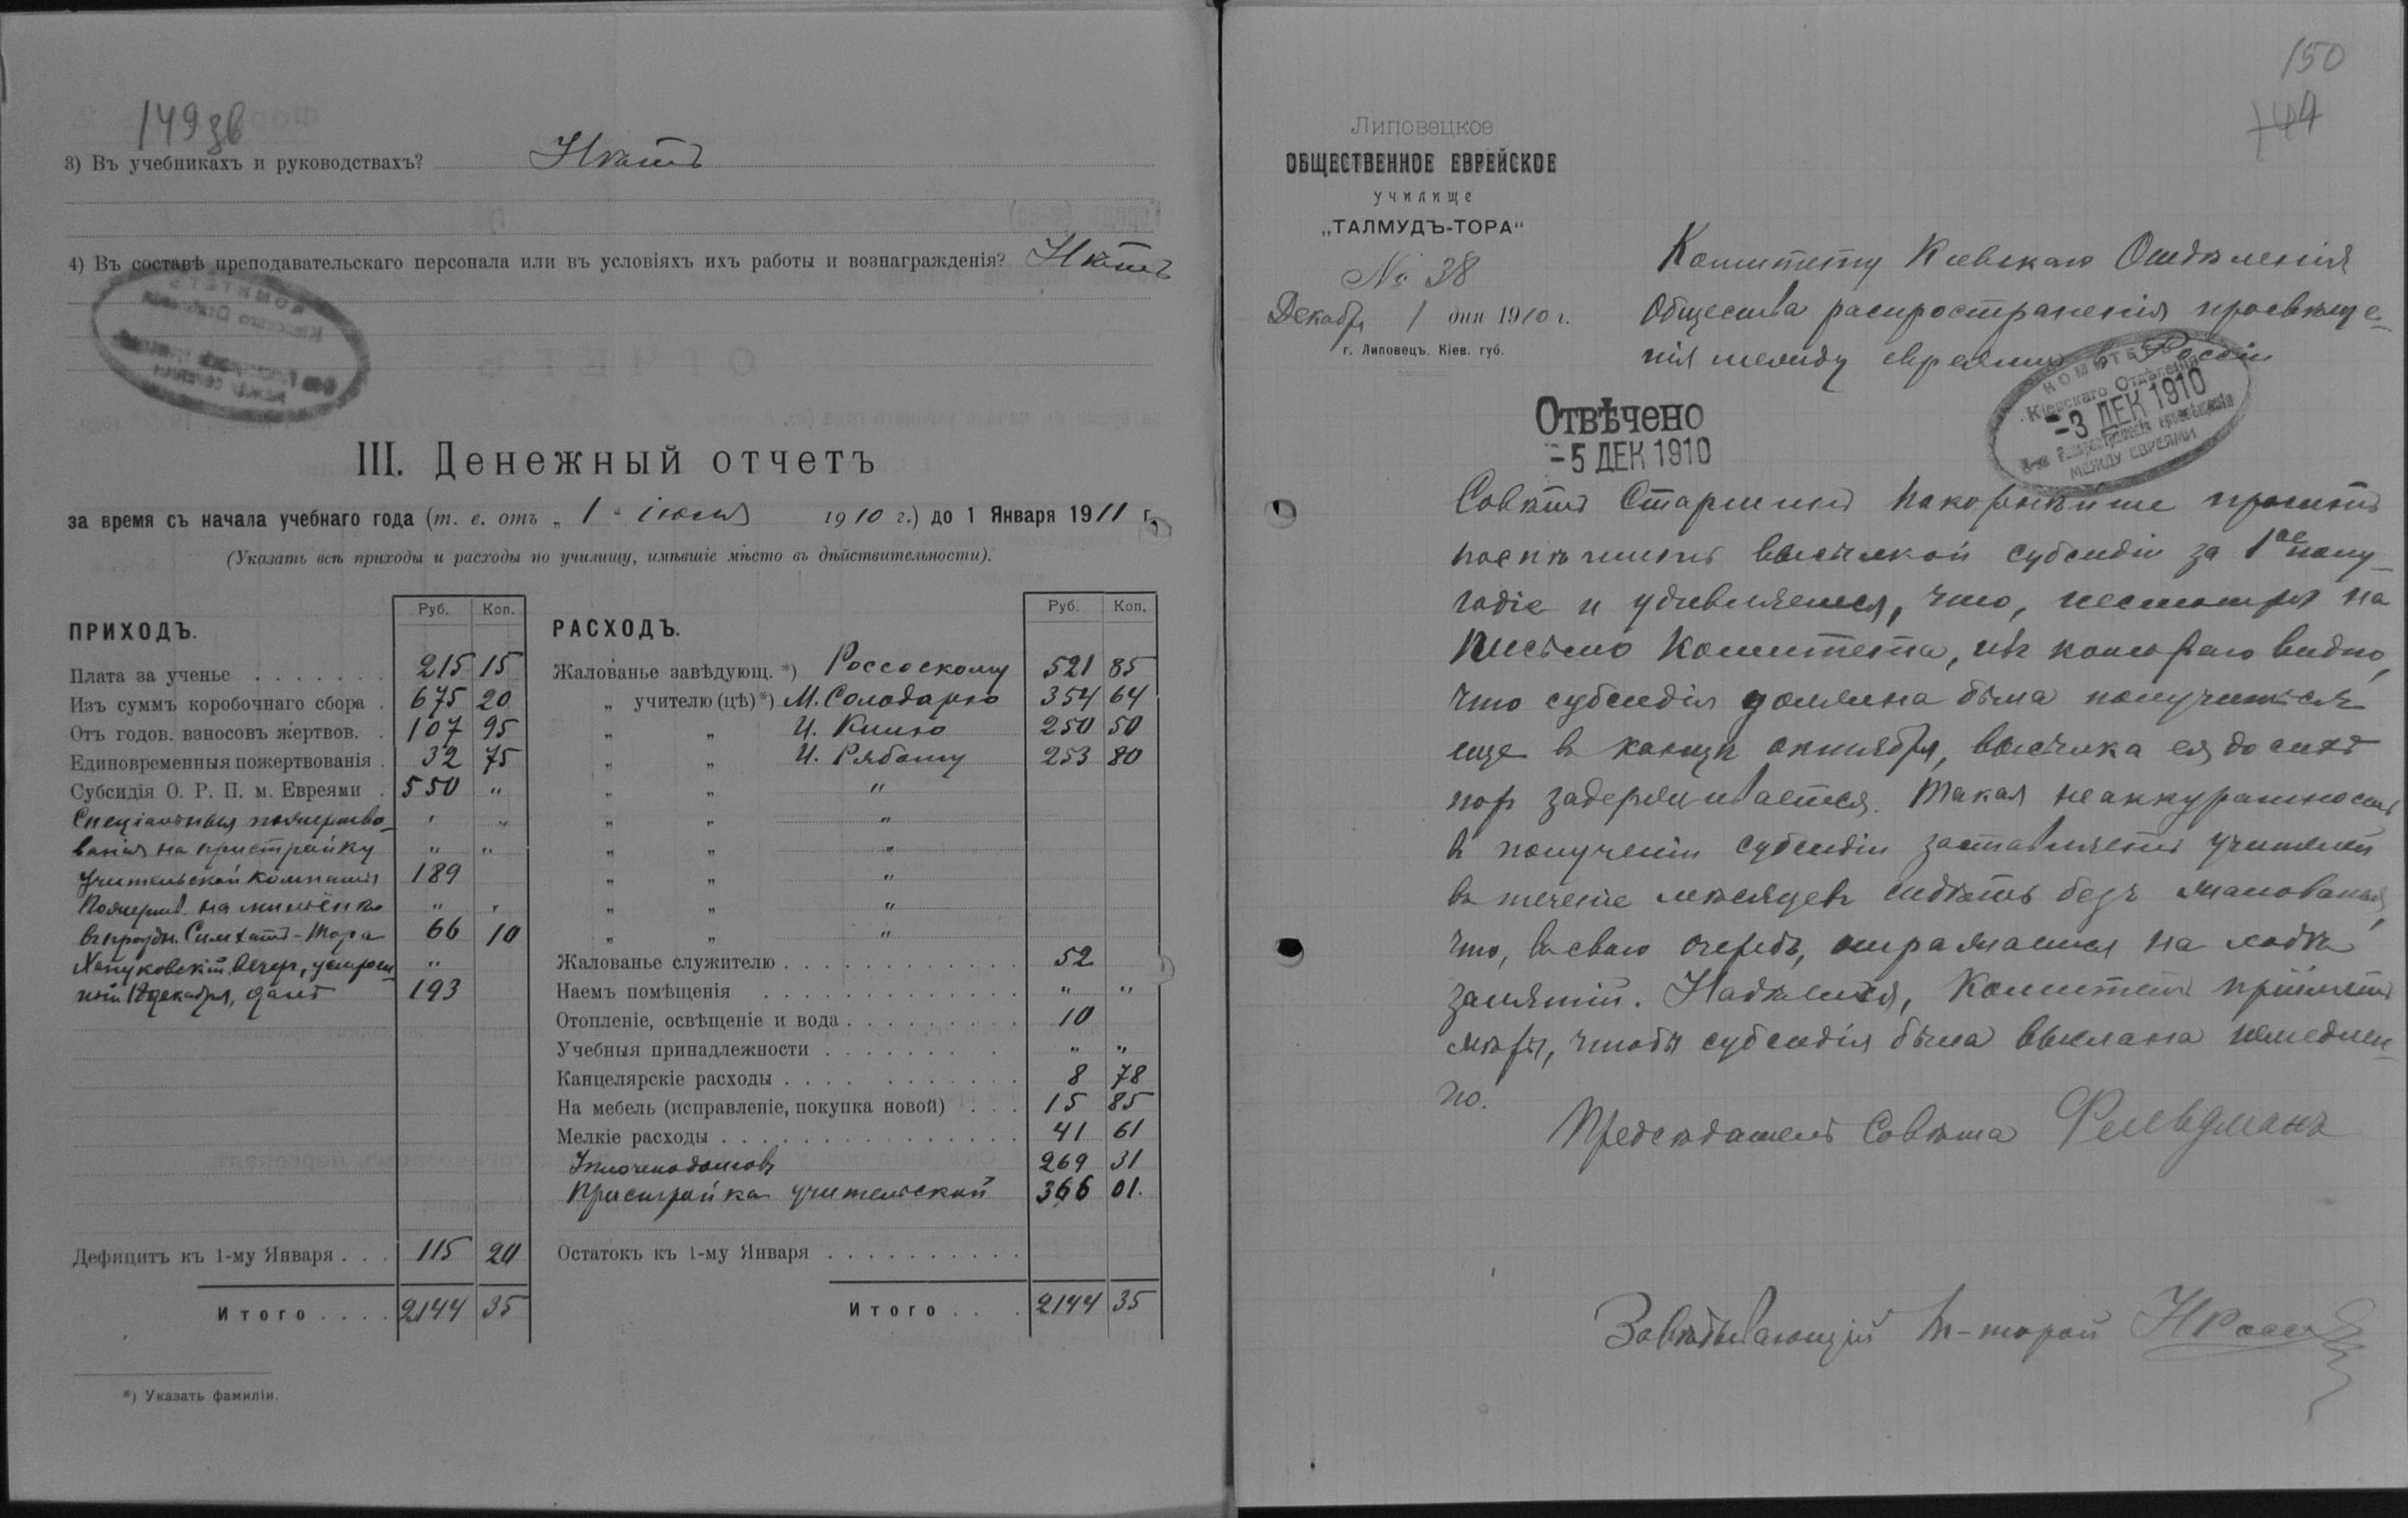 149 зв
3) Въ учебникахъ и руководствахъ? Нѣтъ
4) Въ составѣ преподавательскаго персонала или въ условіяхъ ихъ работы и вознагражденія? Нѣтъ
III. Денежный отчетъ
за время съ начала учебнаго года (т. е. отъ „ 1 " іюля 1910 г.) до 1 Января 1911 г.
(Указать всѣ приходы и расходы по училищу, имѣвшіе мѣсто въ дѣйствительности).
ПРИХОДЪ. Руб. Коп.
Плата за ученье 215 15
Изъ суммъ коробочнаго сбора 675 20
Отъ годов. взносовъ жертвов. 107 95
Единовременныя пожертвованія 32 75
Субсидія О. Р. П. м. Евреями 550 "
Спеціальныя пожертво-
ванія на пристройку " "
учительской комнаты 189
Пожертв. на
въ празды. Симхатъ-Тора 66 10
Хануковскій вечеръ, устроен
ный 18 декабря, далъ 193
Дефицитъ къ 1-му Января 115 20
Итого 2144 35
*) Указать фамиліи.
РАСХОДЪ. Руб. Коп.
Жалованье завѣдующ. *) Россоскому 521 85
„ учителю (цѣ) *) М. Солодарю 354 64
„ „ И. 250 50
„ „ И. Рябому 253 80
„ „ "
„ „ "
„ „ "
„ „ "
„ „ "
„ „ "
Жалованье служителю 52
Наемъ помѣщенія " "
Отопленіе, освѣщеніе и вода 10
Учебныя принадлежности " "
Канцелярскіе расходы 8 78
На мебель (исправленіе, покупка новой) 15 85
Мелкіе расходы 41 61
Уплочено долговъ 269 31
Пристройка учительской 366 01.
Остатокъ къ 1-му Января
Итого 2144 35
150
Липовецкое
ОБЩЕСТВЕННОЕ ЕВРЕЙСКОЕ
училище
„ТАЛМУДЪ-ТОРА“
№ 38
Декабря 1 дня 1910 г.
г. Липовецъ. Кіев. губ.
Комитету Кіевскаго Отдѣленія
Общества распространенія просвѣще-
нія между евреями въ Россіи
КОМИТЕТЪ
Кіевскаго Отдѣленія
-3 ДЕК 1910
О-ва Распространенія просвѣщенія
МЕЖДУ ЕВРЕЯМИ
Отвѣчено
-5 ДЕК 1910
Совѣтъ Старшинъ покорнѣйше проситъ
поспѣшить высылкой субсидіи за 1ое полу-
годіе и удивляется, что, несмотря на
письмо Комитета, изъ котораго видно,
что субсидія должна была получиться
еще въ концѣ октября, высылка ея до сихъ
поръ задерживается. Такая неаккуратность
въ полученіи субсидіи заставляетъ учителей
въ теченіе мѣсяцевъ сидѣть безъ жалованья,
что, въ свою очередь, отражается на ходѣ
занятій. Надѣемся, Комитетъ приметъ
мѣры, чтобы субсидія была выслана немедлен-
но.
Предсѣдатель Совѣта Фельдманъ
Завѣдывающій Т-торой